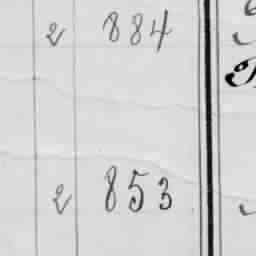 2 884
2 853